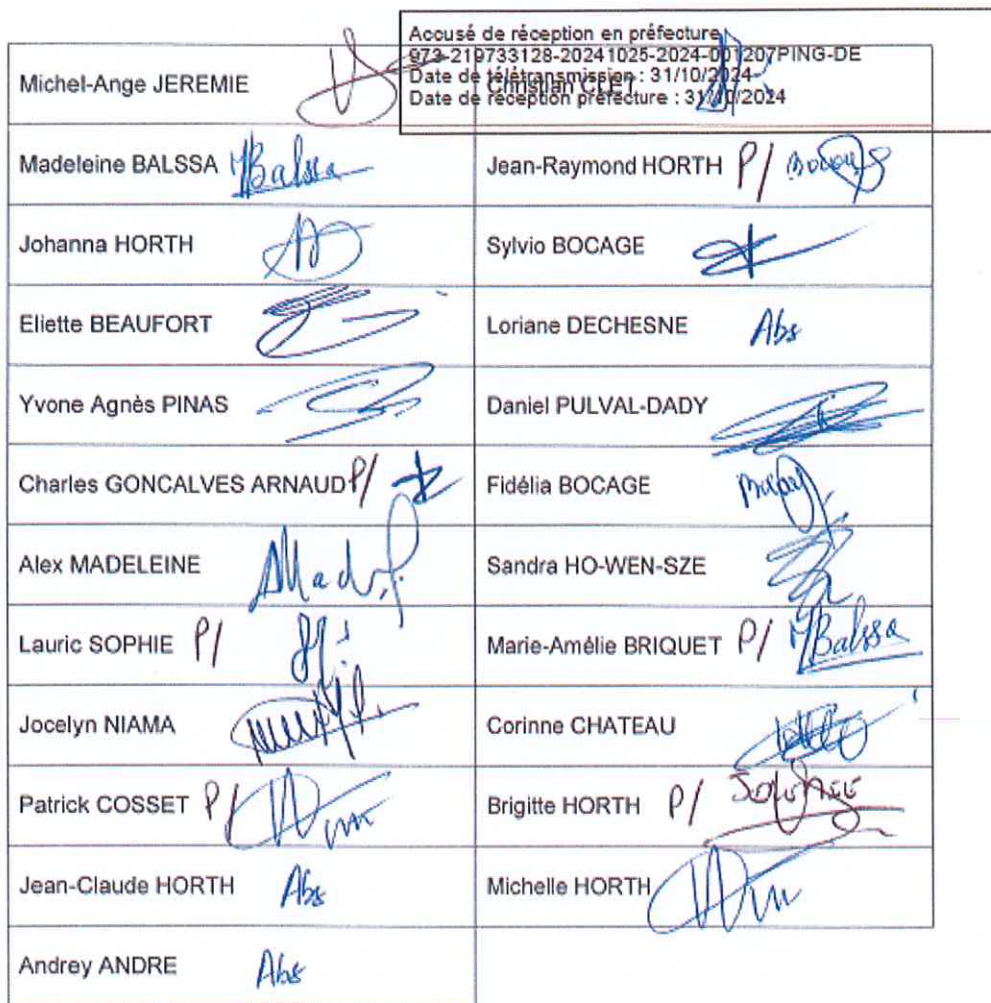 Accusé de réception en préfecture
973-219733128-20241025-2024-001207PING-DE
Date de télétransmission : 31/10/2024
Date de réception préfecture : 31/10/2024
Michel-Ange JEREMIE Christian CLET
Madeleine BALSSA MBalssa Jean-Raymond HORTH P/
Johanna HORTH Sylvio BOCAGE
Eliette BEAUFORT Loriane DECHESNE Abs
Yvone Agnès PINAS Daniel PULVAL-DADY
Charles GONCALVES ARNAUD P/ Fidélia BOCAGE
Alex MADELEINE Sandra HO-WEN-SZE
Lauric SOPHIE P/ Marie-Amélie BRIQUET P/ MBalssa
Jocelyn NIAMA Corinne CHATEAU
Patrick COSSET P/ Brigitte HORTH P/
Jean-Claude HORTH Abs Michelle HORTH
Andrey ANDRE Abs